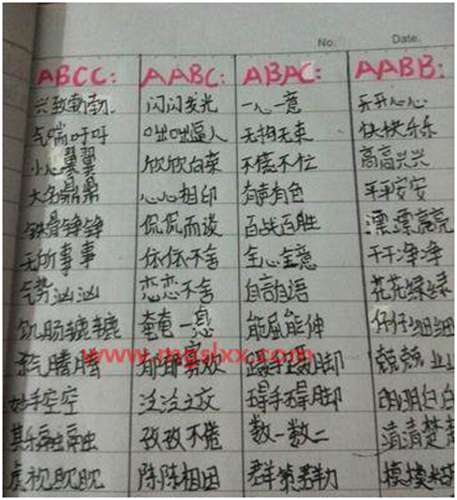 No. Date.
ABCC: AABC: ABAC: AABB:
兴致勃勃. 闪闪发光 一心一意 开开心心
气喘吁吁 咄咄逼人 无拘无束 快快乐乐
小心翼翼 欣欣向荣 不慌不忙 高高兴兴
大名鼎鼎 心心相印 有声有色 平平安安
铁骨铮铮 侃侃而谈 百战百胜 漂漂亮亮
无所事事 依依不舍 全心全意 干干净净
气势汹汹 恋恋不舍 自言自语 花花绿绿
饥肠辘辘 奄奄一息 能屈能伸 仔仔细细
www.mgslxx.com
腾腾 郁郁寡欢 蹑手蹑脚 兢兢业业
妙手空空 泛泛之交 碍手碍脚 明明白白
孜孜不倦 数一数二 清清楚楚
虎视眈眈 陈陈相因 群策群力 模模糊